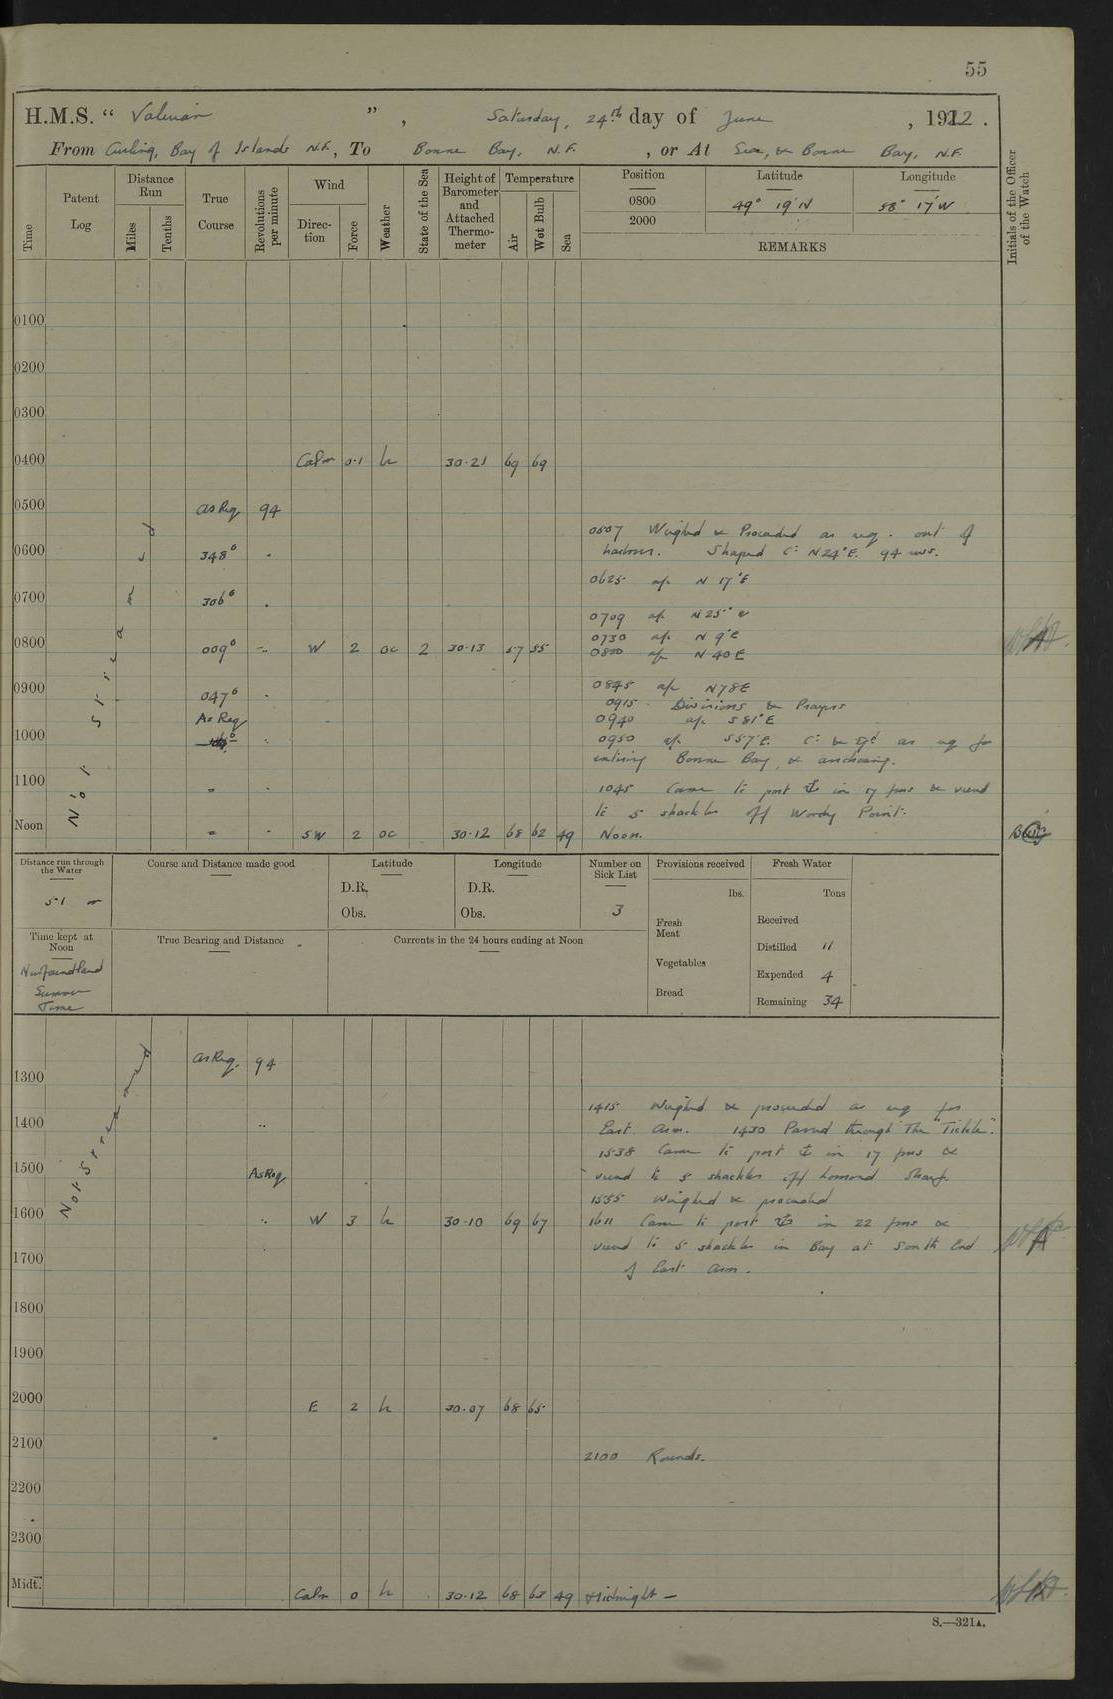 55
H.M.S. " Valerian " , Saturday, 24th day of June , 1922 .
From Curling, Bay of Islands N.F., To Bonne Bay, N.F. , or At Sea, & Bonne Bay, N.F.
Time Patent Log Distance Run Miles Tenths True Course Revolutions per minute Wind Direction Force Weather State of the Sea Height of Barometer and Attached Thermometer Temperature Air Wet Bulb Sea Position 0800 2000 Latitude 49° 19' N Longitude 58° 17' W REMARKS Initials of the Officer of the Watch
Not Streamed
0100
0200
0300
0400 Calm 0-1 b 30.21 69 69
0500 As Req 94
0507 Weighed & Proceeded as req. out of
0600 348° harbour. Shaped C: N24°E. 94 revs.
0625 a/c N 17°E
0700 306°
0709 a/c N25° W
0730 a/c N 9°E
0800 009° W 2 oc 2 30.13 57 55 0800 a/c N 40 E
0845 a/c N78E
0900 047° 0915 Divisions & Prayers
As Req 0940 a/c S 81°E
1000 0950 a/c S57°E. C: & Spd as req for
entering Bonne Bay, & anchoring.
1100 1045 Came to port ⚓ in 17 fms & veered
to 5 shackles off Woody Point.
Noon SW 2 oc 30.12 68 62 49 Noon.
Distance run through the Water 51
Course and Distance made good
Latitude D.R. Obs.
Longitude D.R. Obs.
Number on Sick List 3
Provisions received lbs. Fresh Meat Vegetables Bread
Fresh Water Tons Received Distilled 11 Expended 4 Remaining 34
Time kept at Noon Newfoundland Summer Time
True Bearing and Distance
Currents in the 24 hours ending at Noon
Not Streamed
As Req. 94
1300
1415 Weighed & proceeded as req for
1400 East Arm. 1430 Passed through The "Tickle".
1538 Came to port ⚓ in 17 fms &
1500 As Req veered to 5 shackles off Lomond Wharf.
1555 Weighed & proceeded
1600 W 3 b 30.10 69 67 1611 Came to port ⚓ in 22 fms &
veered to 5 shackles in Bay at South End
1700 of East Arm.
1800
1900
2000 E 2 b 30.07 68 65
2100
2100 Rounds.
2200
2300
Midt. Calm 0 b 30.12 68 63 49 Midnight —
S.—321A.